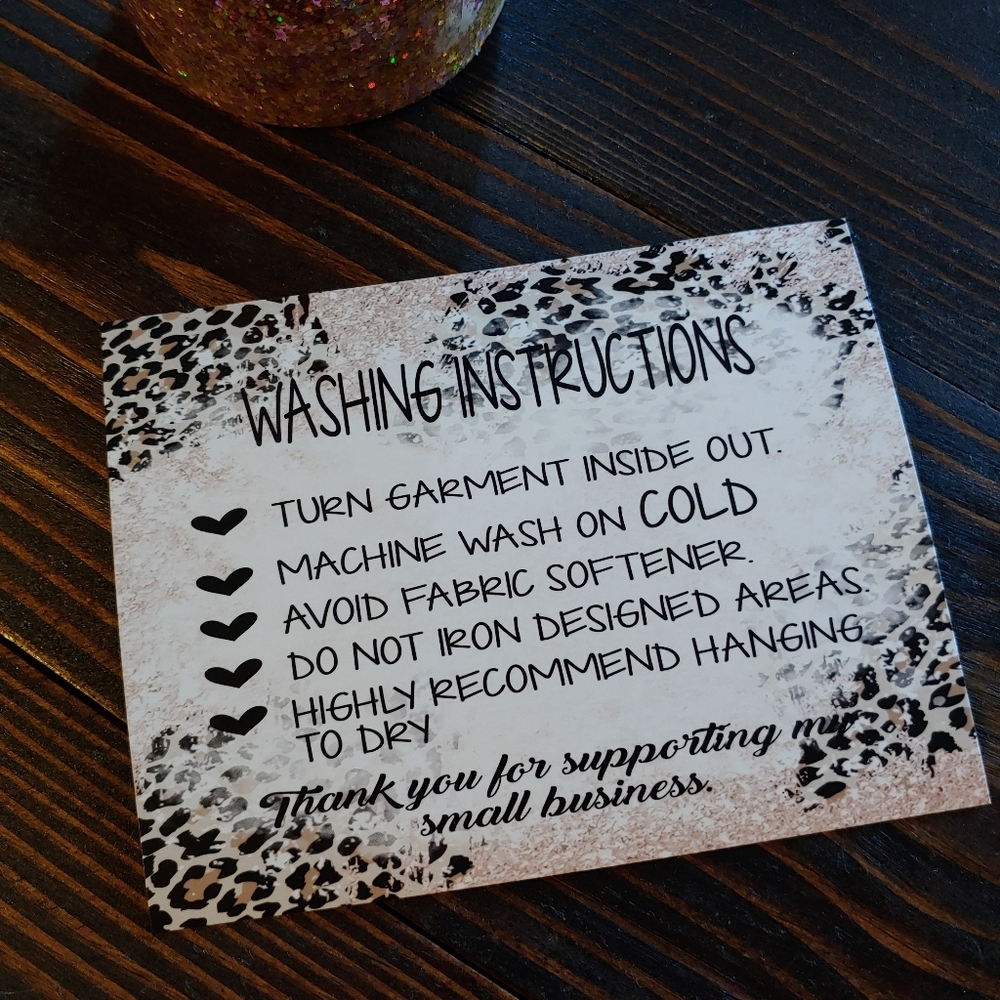 WASHING INSTRUCTIONS
TURN GARMENT INSIDE OUT.
MACHINE WASH ON COLD
AVOID FABRIC SOFTENER.
DO NOT IRON DESIGNED AREAS.
HIGHLY RECOMMEND HANGING
TO DRY
Thank you for supporting my
small business.